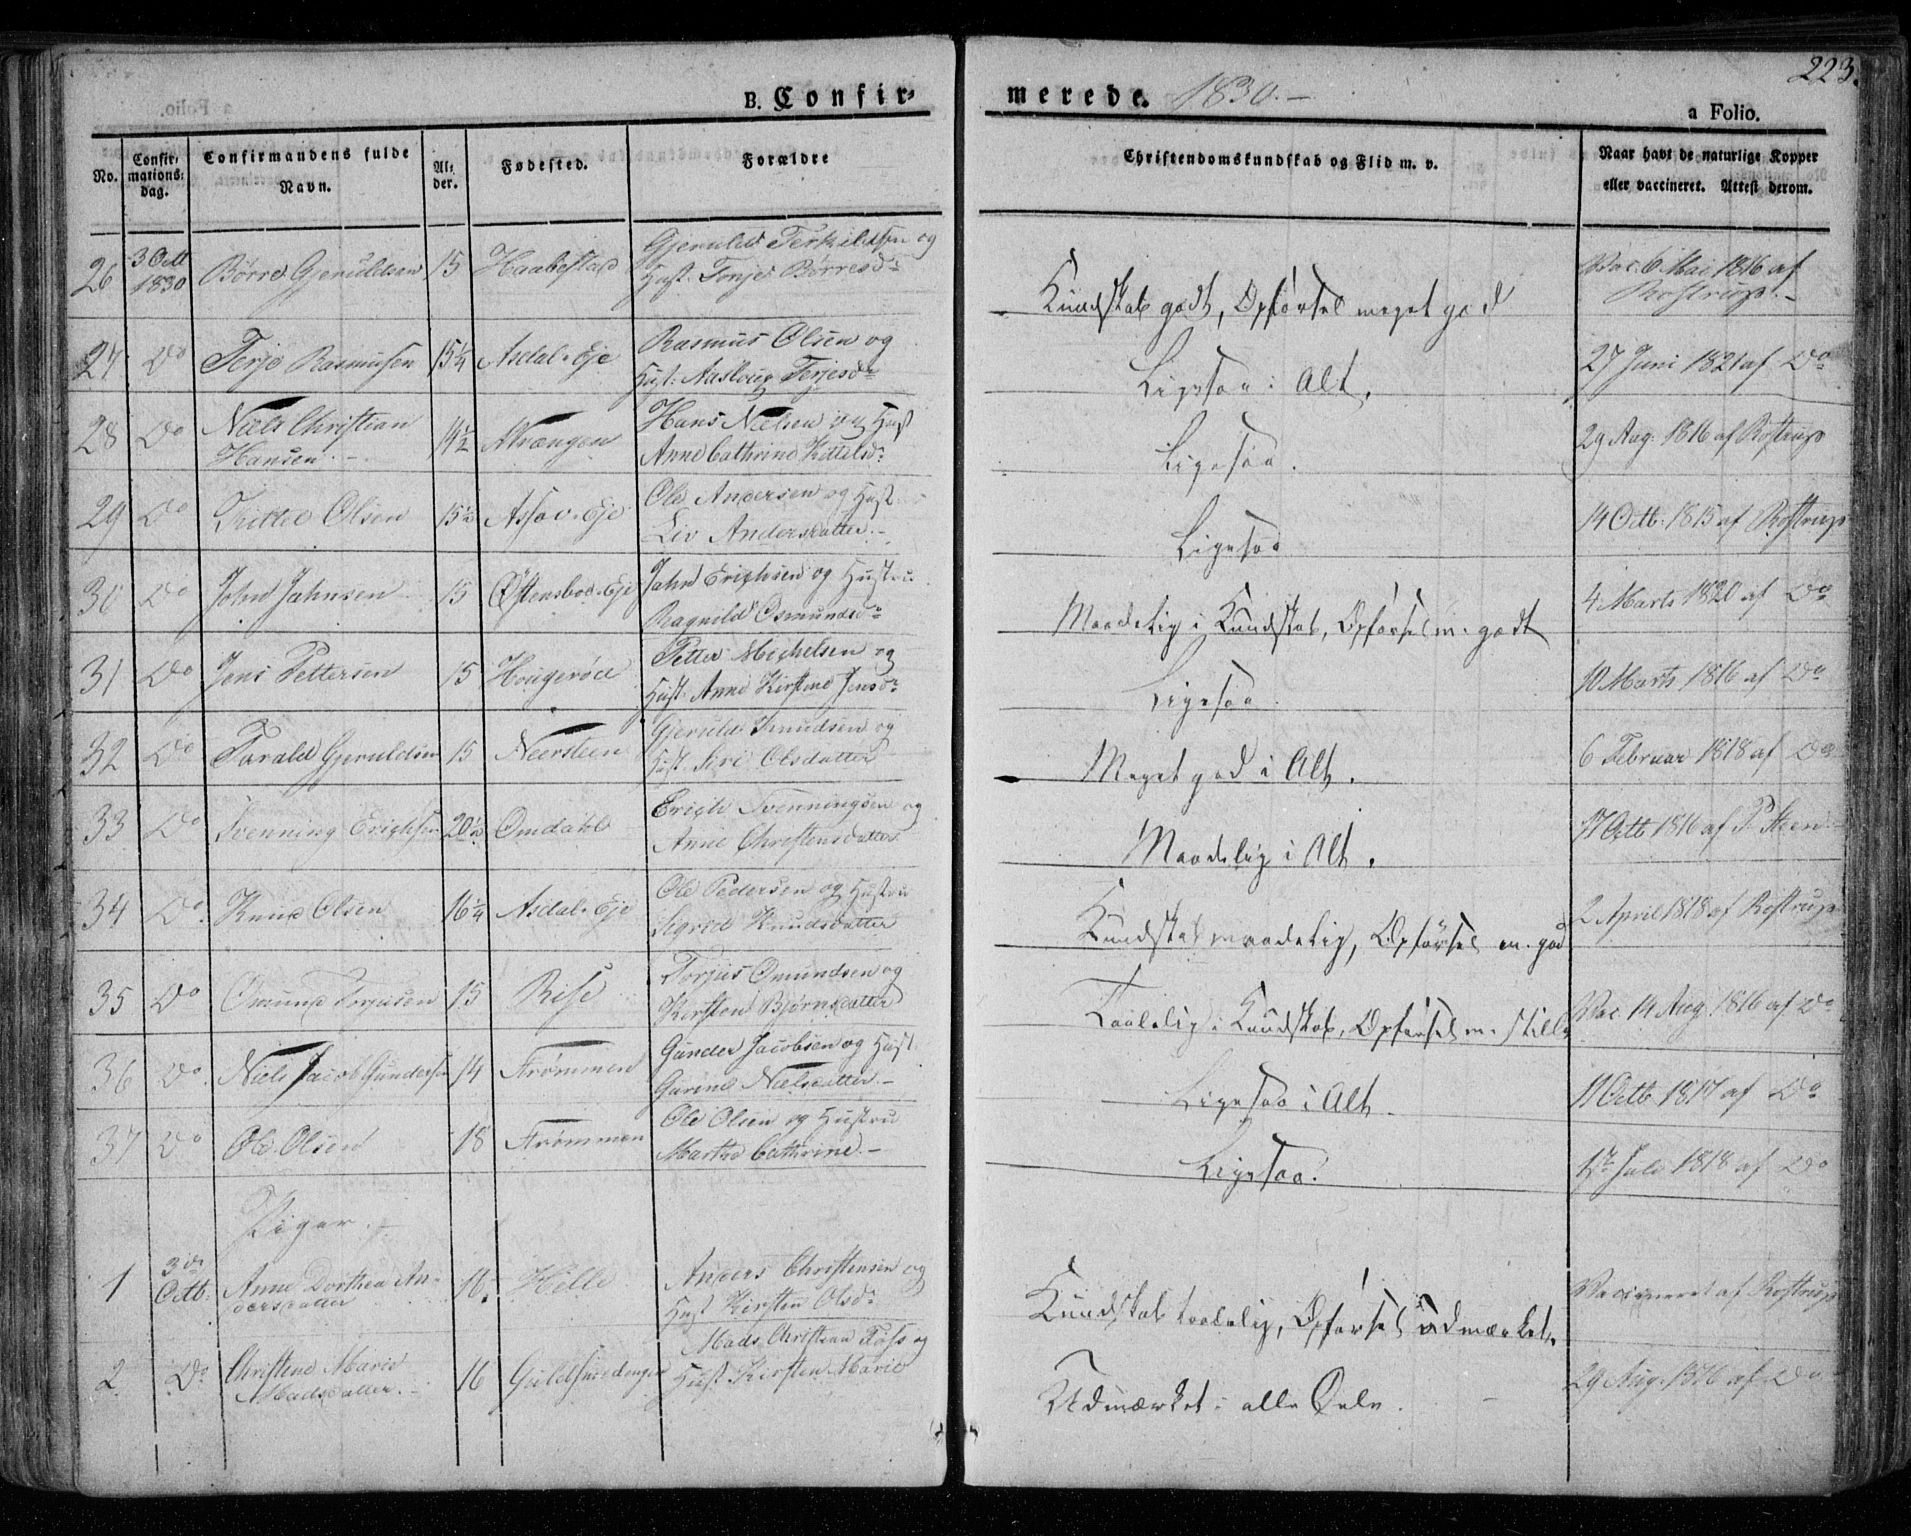 223.
B. Confirmerede. 1830.-
a Folio.
No.
Confirmationsdag.
Confirmandens fulde Navn.
Alder.
Fødested.
Forældre
Christendomskundskab og Flid m. v.
Naar havt de naturlige Kopper eller vaccineret. Attest derom.
26 3 Octb 1830 Børre Gjeruldsen 15 Haabestad Gjeruld Terkildsen og Hust. Tonje Børresdr Kundskab godt, Opførsel meget god Vac. 6 Mai 1816 af Rostrup.-
27 Do Terje Rasmusen 15¼ Asdal-Eje Rasmus Olsen og Hust: Aasloug Terjesdr Ligesaa i Alt. 27 Juni 1821 af Do
28 Do Niels Christian Hansen.- 14½ Hans Nielsen og Hust Anne Cathrine Kittelsdr Ligesaa. 29 Aug. 1816 af Rostrup
29 Do Kittel Olsen 15½ Assav-Eje Ole Andersen og Hust. Liv Andersdatter.- Ligesaa 14 Octb. 1815 af Rostrup
30 Do John Jahnsen 15 Østensbo-Eje Jahn Erichsen og Hustru Ragnild Osmundsdr Maadelig i Kundskab, Opførsel m. godt 4 Marts 1820 af Do
31 Do Jens Pettersen 15 Hougerød Petter Michelsen og Hust. Anne Kirstine Jensdr Ligesaa. 10 Marts 1816 af Do
32 Do Tarald Gjeruldsen 15 Neersteen Gjeruld Knudsen og Hust. Siri Olsdatter Meget god i Alt. 6 Februar 1818 af Do
33 Do Svenning Erichsen 20½ Omdahl Erich Svenningsen og Anne Christensdatter Maadelig i Alt. 17 Octb 1816 af P. Steen.-
34 Do. Knud Olsen 16¼ Asdal-Eje Ole Pedersen og Hustru Sigrid Knudsdatter Kundskab maadelig, Opførsel m. god 2 April 1818 af Rostrup
35 Do Omund Torjusen 15 Rise Torjus Omundsen og Kirsten Bjørnsdatter Taalelig i Kundskab, Opførsel m. stille Vac 14 Aug 1816 af Do
36 Do. Niels Jacob Gundersen 14 Strømmen Gunder Jacobsen og Hust. Gurine Nielsdatter.- Ligesaa i Alt. 11 Octb. 1817 af Do
37 Do Ole Olsen 18 Strømmen Ole Olsen og Hustru Marthe Cathrine.- Ligesaa. Juli 1818 af Do
Piger.-
1 3de Octb. Anne Dorthea Andersdatter 16. Helle Anders Christensen og Hust Kirsten Olsdr Kundskab taalelig, Opførsel udmærket. Vaccineret af Rostrup
2. Do. Christine Marie Madsdatter.- 16 Guldsmedengen Mads Christian Foss og Hust Kirsten Marie Udmærket i alle Dele. 29 Aug. 1816 af Do